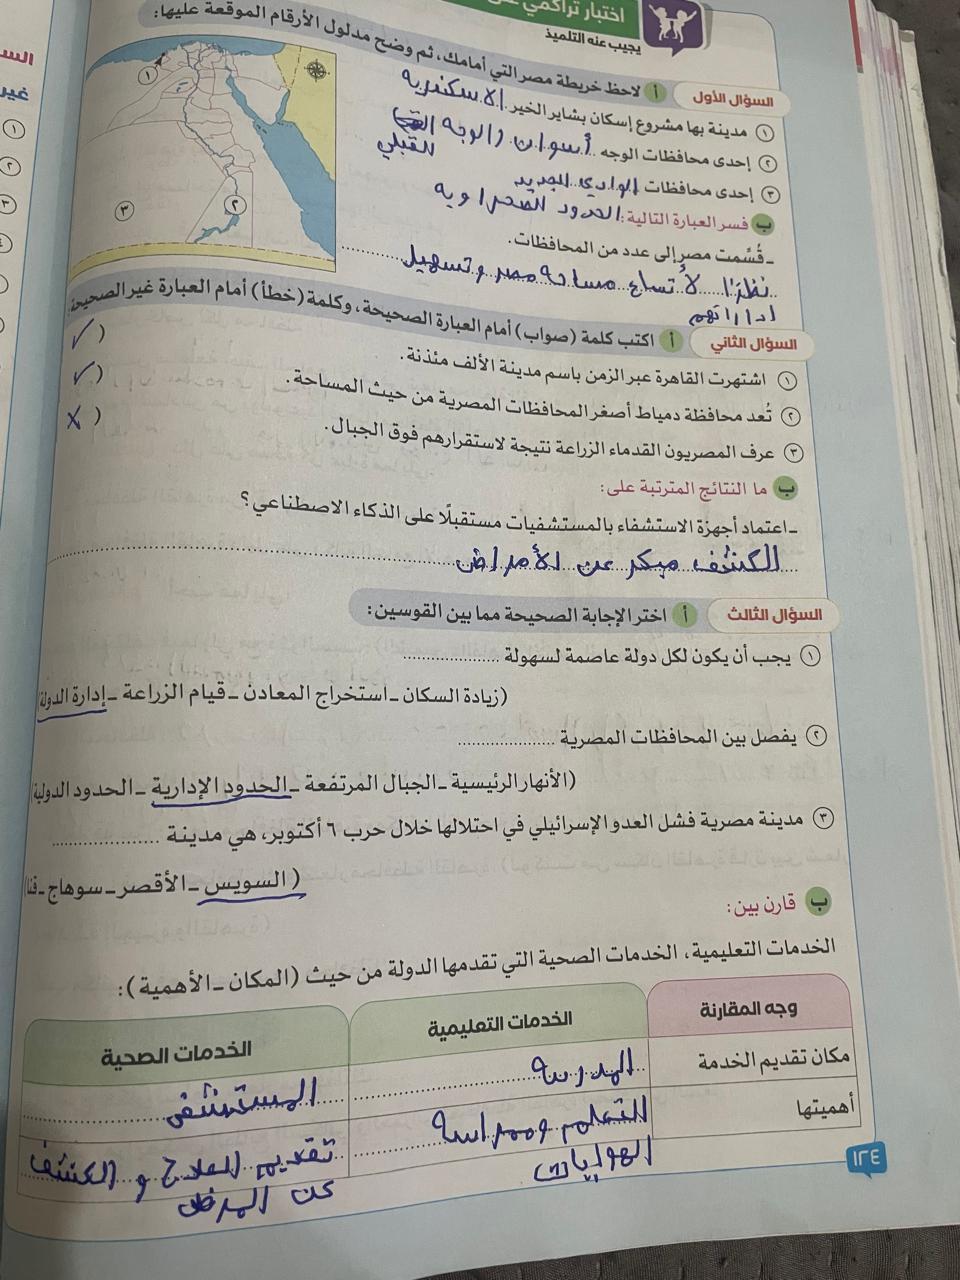 اختبار تراكمي
يجيب عنه التلميذ
السؤال الأول أ لاحظ خريطة مصر التي أمامك، ثم وضح مدلول الأرقام الموقعة عليها:
١ مدينة بها مشروع إسكان بشاير الخير الاسكندريه
٢ إحدى محافظات الوجه أسوان والوجه
القبلي
٣ إحدى محافظات الوادي الجديد
الحدود الصحراويه
ب فسر العبارة التالية:
ـ قُسِّمت مصر إلى عدد من المحافظات.
نظرًا لأتساع مساحة مصر وتسهيل
اداراتهم
١
٢
٣
السؤال الثاني أ اكتب كلمة (صواب) أمام العبارة الصحيحة، وكلمة (خطأ) أمام العبارة غير الصحيحة:
١ اشتهرت القاهرة عبر الزمن باسم مدينة الألف مئذنة. ( ✓
٢ تُعد محافظة دمياط أصغر المحافظات المصرية من حيث المساحة. ( ✓
٣ عرف المصريون القدماء الزراعة نتيجة لاستقرارهم فوق الجبال. ( ✗
ب ما النتائج المترتبة على:
ـ اعتماد أجهزة الاستشفاء بالمستشفيات مستقبلًا على الذكاء الاصطناعي؟
الكشف مبكر عن الأمراض
السؤال الثالث أ اختر الإجابة الصحيحة مما بين القوسين:
١ يجب أن يكون لكل دولة عاصمة لسهولة ....................
(زيادة السكان ـ استخراج المعادن ـ قيام الزراعة ـ إدارة الدولة)
٢ يفصل بين المحافظات المصرية ....................
(الأنهار الرئيسية ـ الجبال المرتفعة ـ الحدود الإدارية ـ الحدود الدولية)
٣ مدينة مصرية فشل العدو الإسرائيلي في احتلالها خلال حرب ٦ أكتوبر، هي مدينة ....................
(السويس ـ الأقصر ـ سوهاج ـ قنا)
ب قارن بين:
الخدمات التعليمية، الخدمات الصحية التي تقدمها الدولة من حيث (المكان ـ الأهمية):
وجه المقارنة الخدمات التعليمية الخدمات الصحية
مكان تقديم الخدمة المدرسة المستشفى
أهميتها التعلم وممارسة الهوايات تقديم العلاج و الكشف
عن المرض
١٢٤